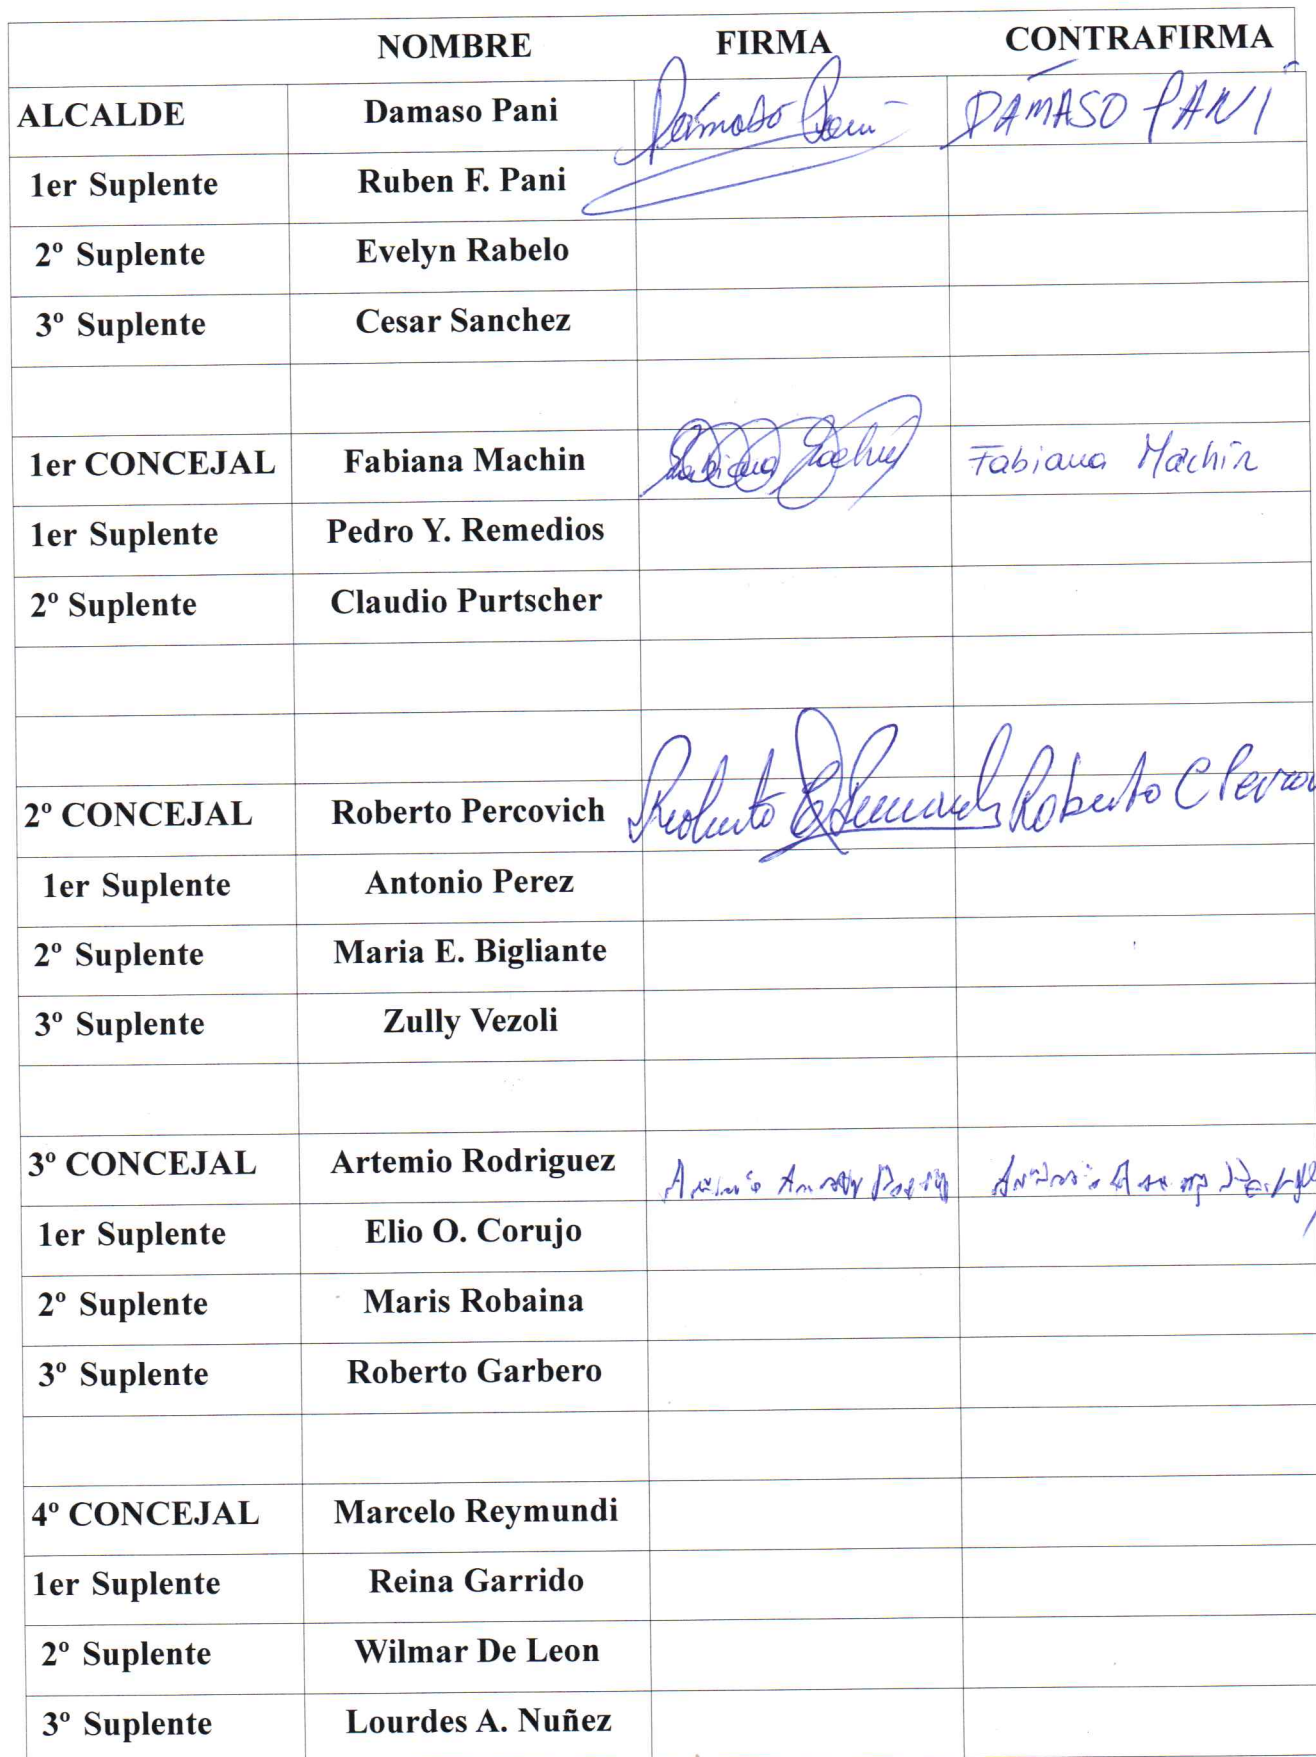 NOMBRE FIRMA CONTRAFIRMA
ALCALDE Damaso Pani Dámaso Pani DAMASO PANI
1er Suplente Ruben F. Pani
2º Suplente Evelyn Rabelo
3º Suplente Cesar Sanchez
1er CONCEJAL Fabiana Machin Fabiana Machin Fabiana Machin
1er Suplente Pedro Y. Remedios
2º Suplente Claudio Purtscher
2º CONCEJAL Roberto Percovich Roberto Roberto C
1er Suplente Antonio Perez
2º Suplente Maria E. Bigliante
3º Suplente Zully Vezoli
3º CONCEJAL Artemio Rodriguez
1er Suplente Elio O. Corujo
2º Suplente Maris Robaina
3º Suplente Roberto Garbero
4º CONCEJAL Marcelo Reymundi
1er Suplente Reina Garrido
2º Suplente Wilmar De Leon
3º Suplente Lourdes A. Nuñez